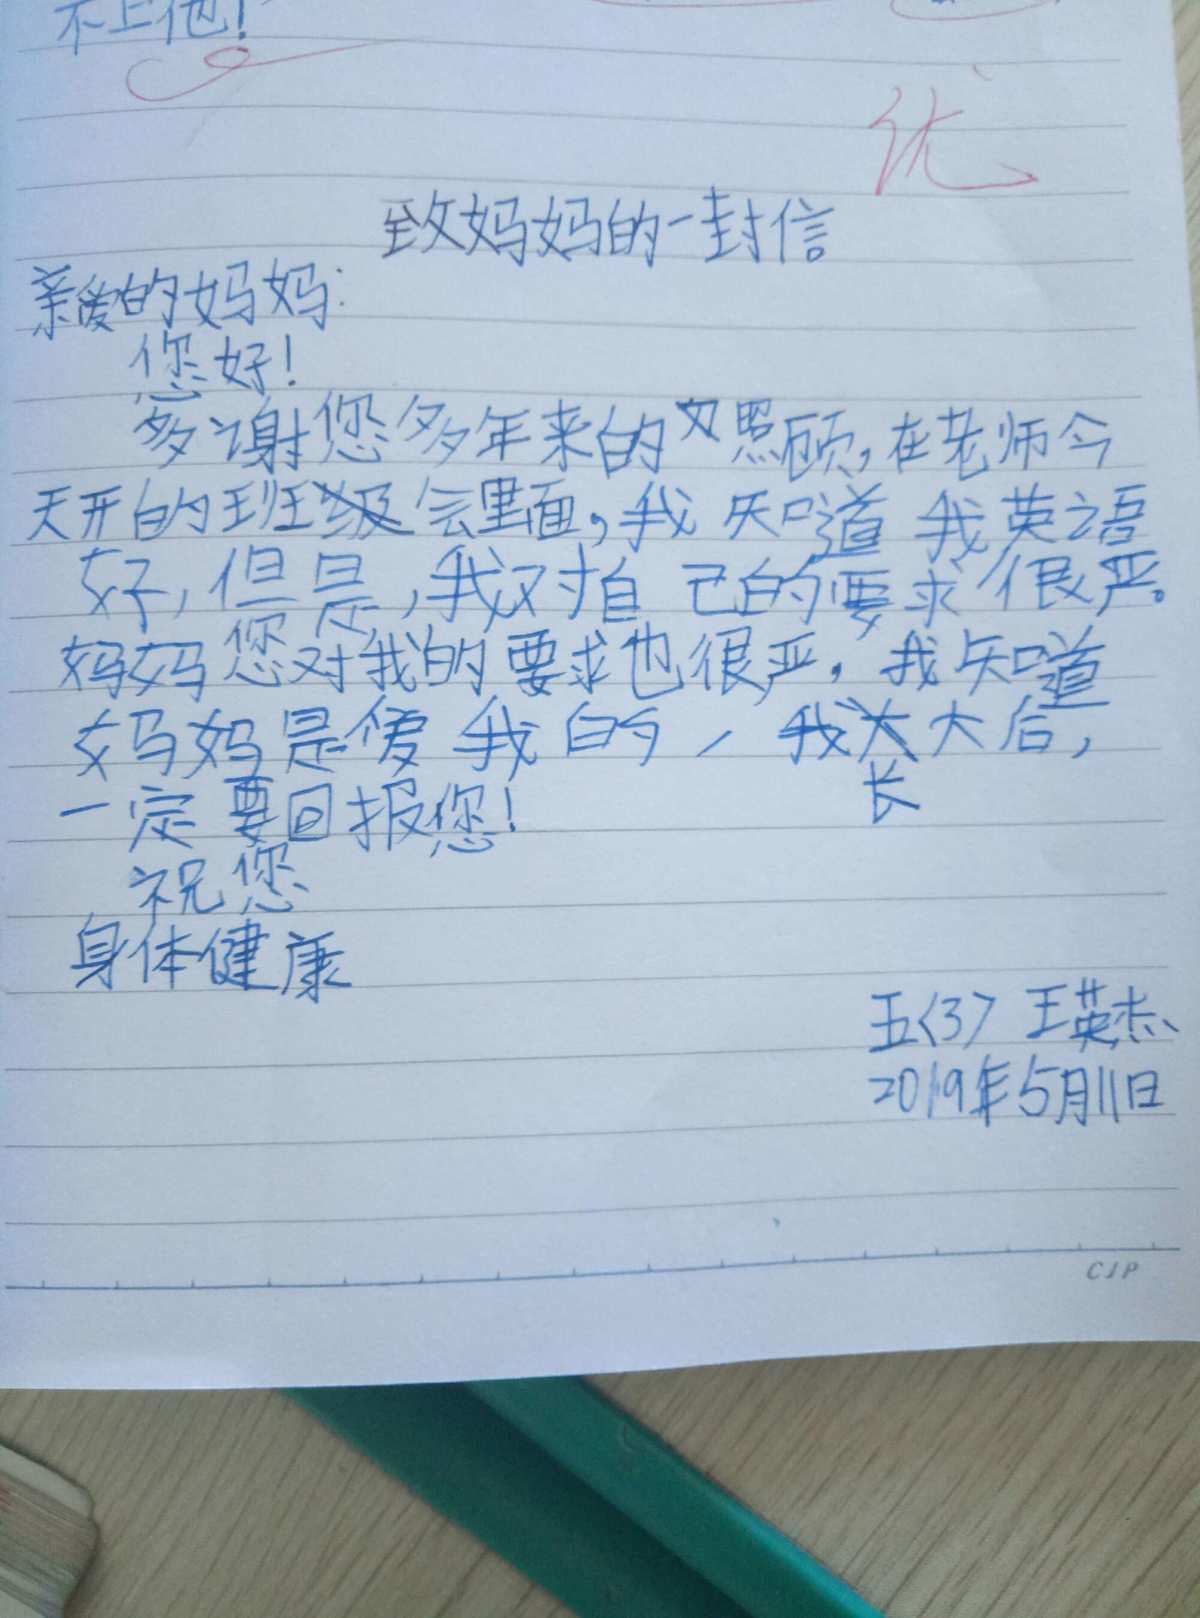 不上他!
优
致妈妈的一封信
亲爱的妈妈:
您好!
多谢您多年来的照顾,在老师今
天开的班级会里面,我知道我英语
好,但是,我对自己的要求很严。
妈妈您对我的要求也很严,我知道
妈妈是爱我的,我长大后,
一定要回报您!
祝您
身体健康
五(3) 王英杰
2019年5月11日
CJP